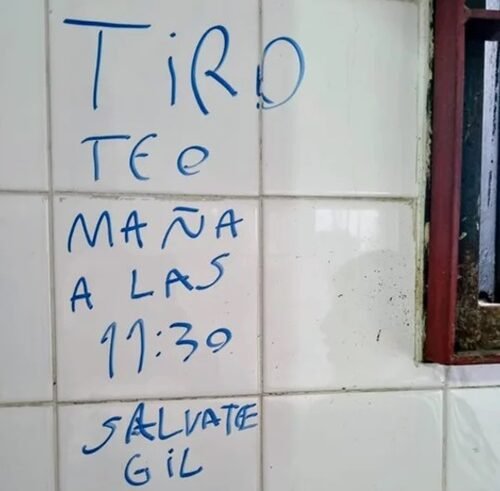 TiRO
TEO
MAÑA
A LAS
11:30
SALVATE
GiL